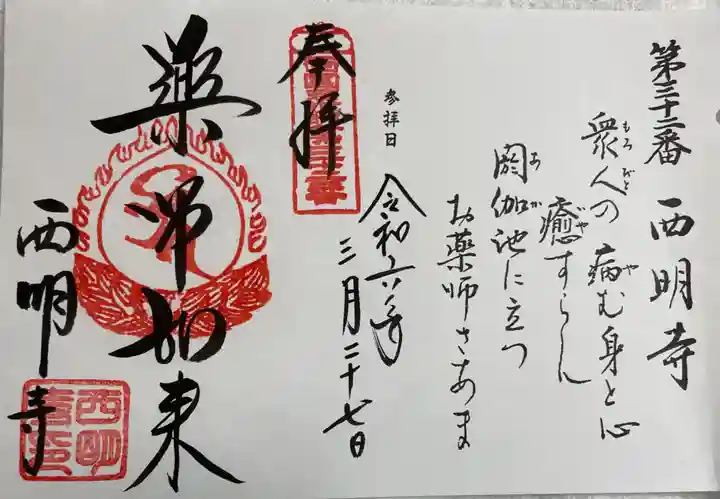 第三十二番 西明寺
衆人の 病む身と心
もろびと や
癒すらん
いや
閼伽池に立つ
あか
お薬師さあま
参拝日
令和六年
三月二十七日
奉拝
薬師如来
西明寺